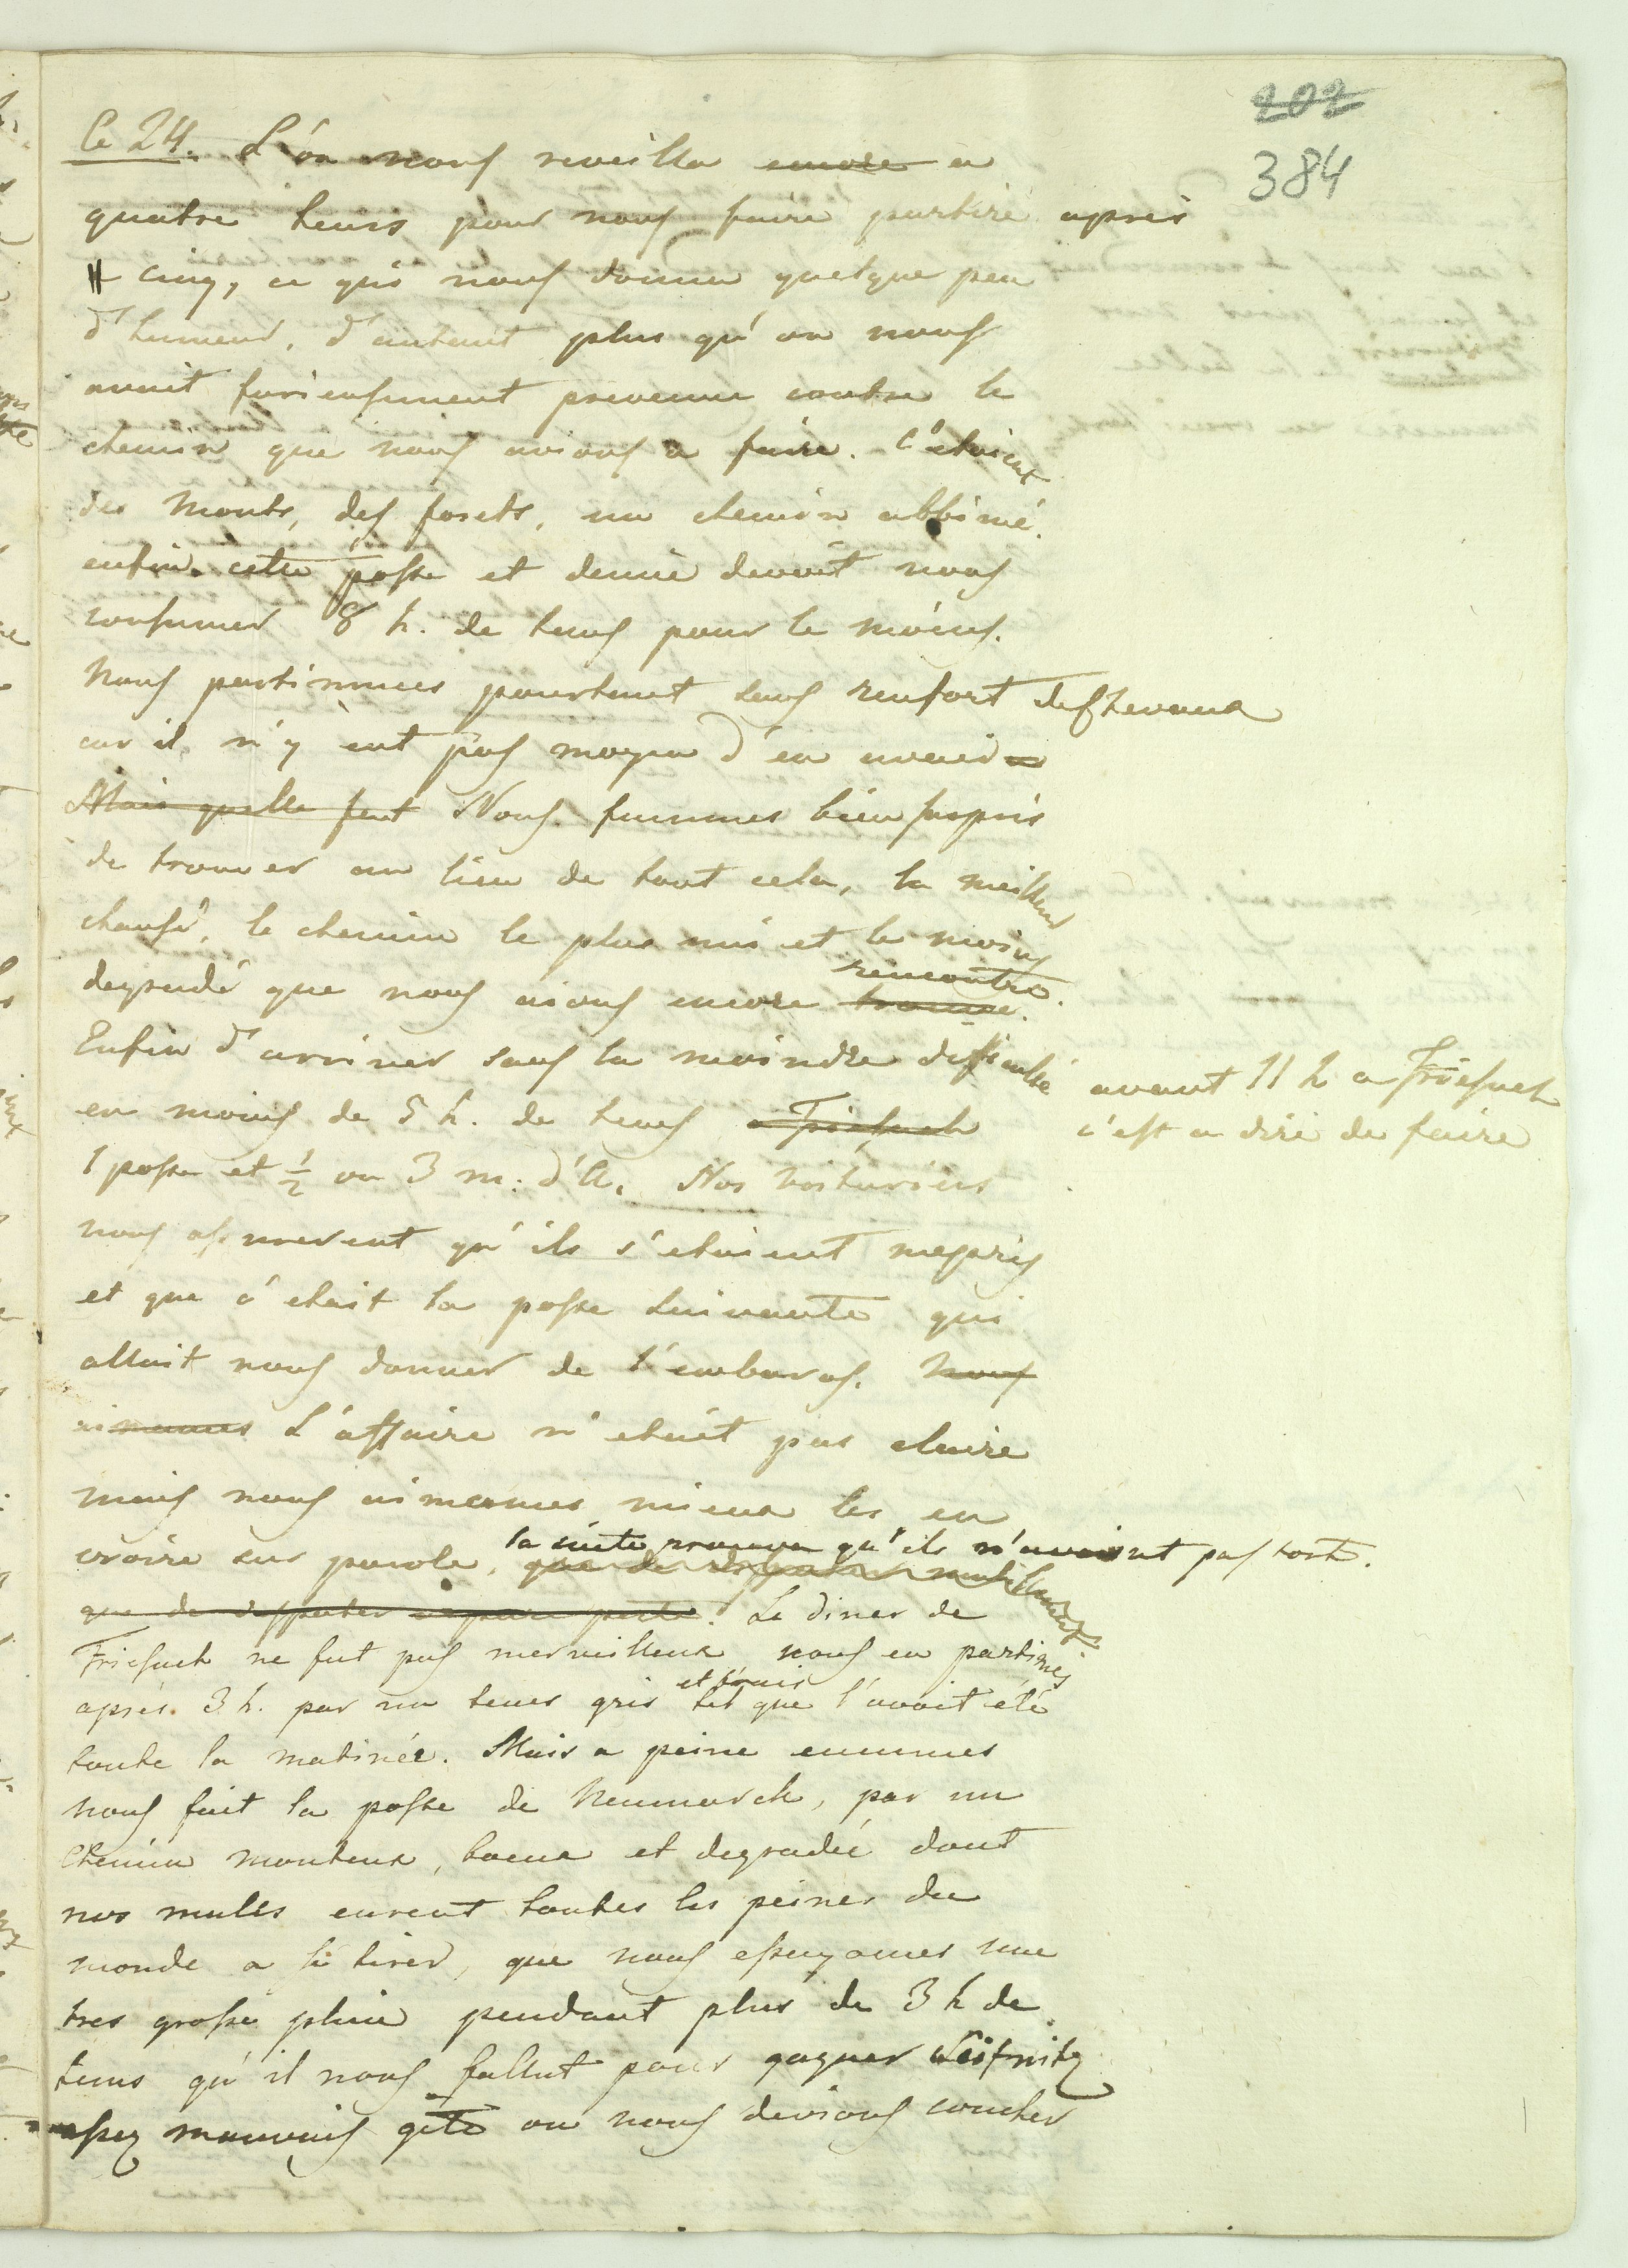 202
384
Ce 24. L'on nous reveilla encore a
quatre heurs pour nous faire partire après
cinq, ce qui nous donna quelque peu
d'humeur, d'autant plus qu'on nous
avait furieusement prevenu contre le
chemin que nous avions a faire. C'etoient
des monts, des forets, un chemin abbimé.
enfin cette poste et demie devoit nous
consumer 8 h. de tems pour le moins.
Nous partimmes pourtant sans renfort des chevaux
car il n'y eut pas moyen d'en avoir
Mais quelle fut Nous fummes bien surpris
de trouver au lieu de tout cela, la meilleur
chaussé, le chemin le plus uni et le moins
degradé que nous aions encore trouvé. rencontré.
Enfin d'arriver sans la moindre difficulté avant 11 h a Friesach
en moins de 5 h. de tems a Friesach c'est a dire de faire
1 poste et ½ ou 3 m: d'A. Nos voituriers
nous assurerent qu'ils s'etaient mepris
et que c'etait la poste suivante qui
alloit nous donner de l'embaras. Nous
aimames L'affaire n'etait pas claire
mais nous aimames mieux les en
croire sur parole, la suite prouva qu'ils n'avaient pas tort.
que de disputer. Le diner de
Friesach ne fut pas merveilleux nous en partimes
après 3 h. par un tems gris et frais tel que l'avoit été
toute la matinée. Mais a peine eummes
nous fait la poste de Neumarck, par un
chemin monteux, boeux et degradée dont
nos mules eurent toutes les peines du
monde a se tirer, que nous essuyames une
tres grosse pluie pendant plus de 3 h de
tems qu'il nous fallut pour gagner
assez mauvais gite ou nous devions coucher